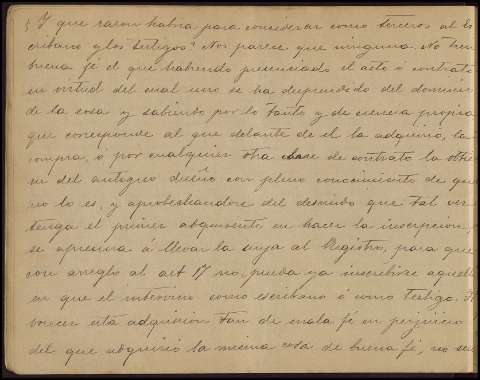 ¿Y que razon habra para considerar como terceros al Es
cribano y los testigos? Nos parece que ninguna. No tien
buena fé el que habiendo presenciado el acto ó contrato
en virtud del cual uno se ha desprendido del dominio
de la cosa y sabiendo por lo tanto y de ciencia propia
que corresponde al que delante de él la adquirió, la
compra, ó por cualquier otra clase de contrato la obtie
ne del antiguo dueño con pleno conocimiento de que
no lo es, y aprobechandose del descuido que tal vez
tenga el primer adquirente en hacer la inscripcion,
se apresura á llevar la suya al Registro, para que
con arreglo al art 17 no pueda ya inscribirse aquell
en que el intervino como escribano ó como testigo.
vorecer esta adquisicion tan de mala fé en perjuicio
del que adquirió la misma cosa de buena fé, no ser